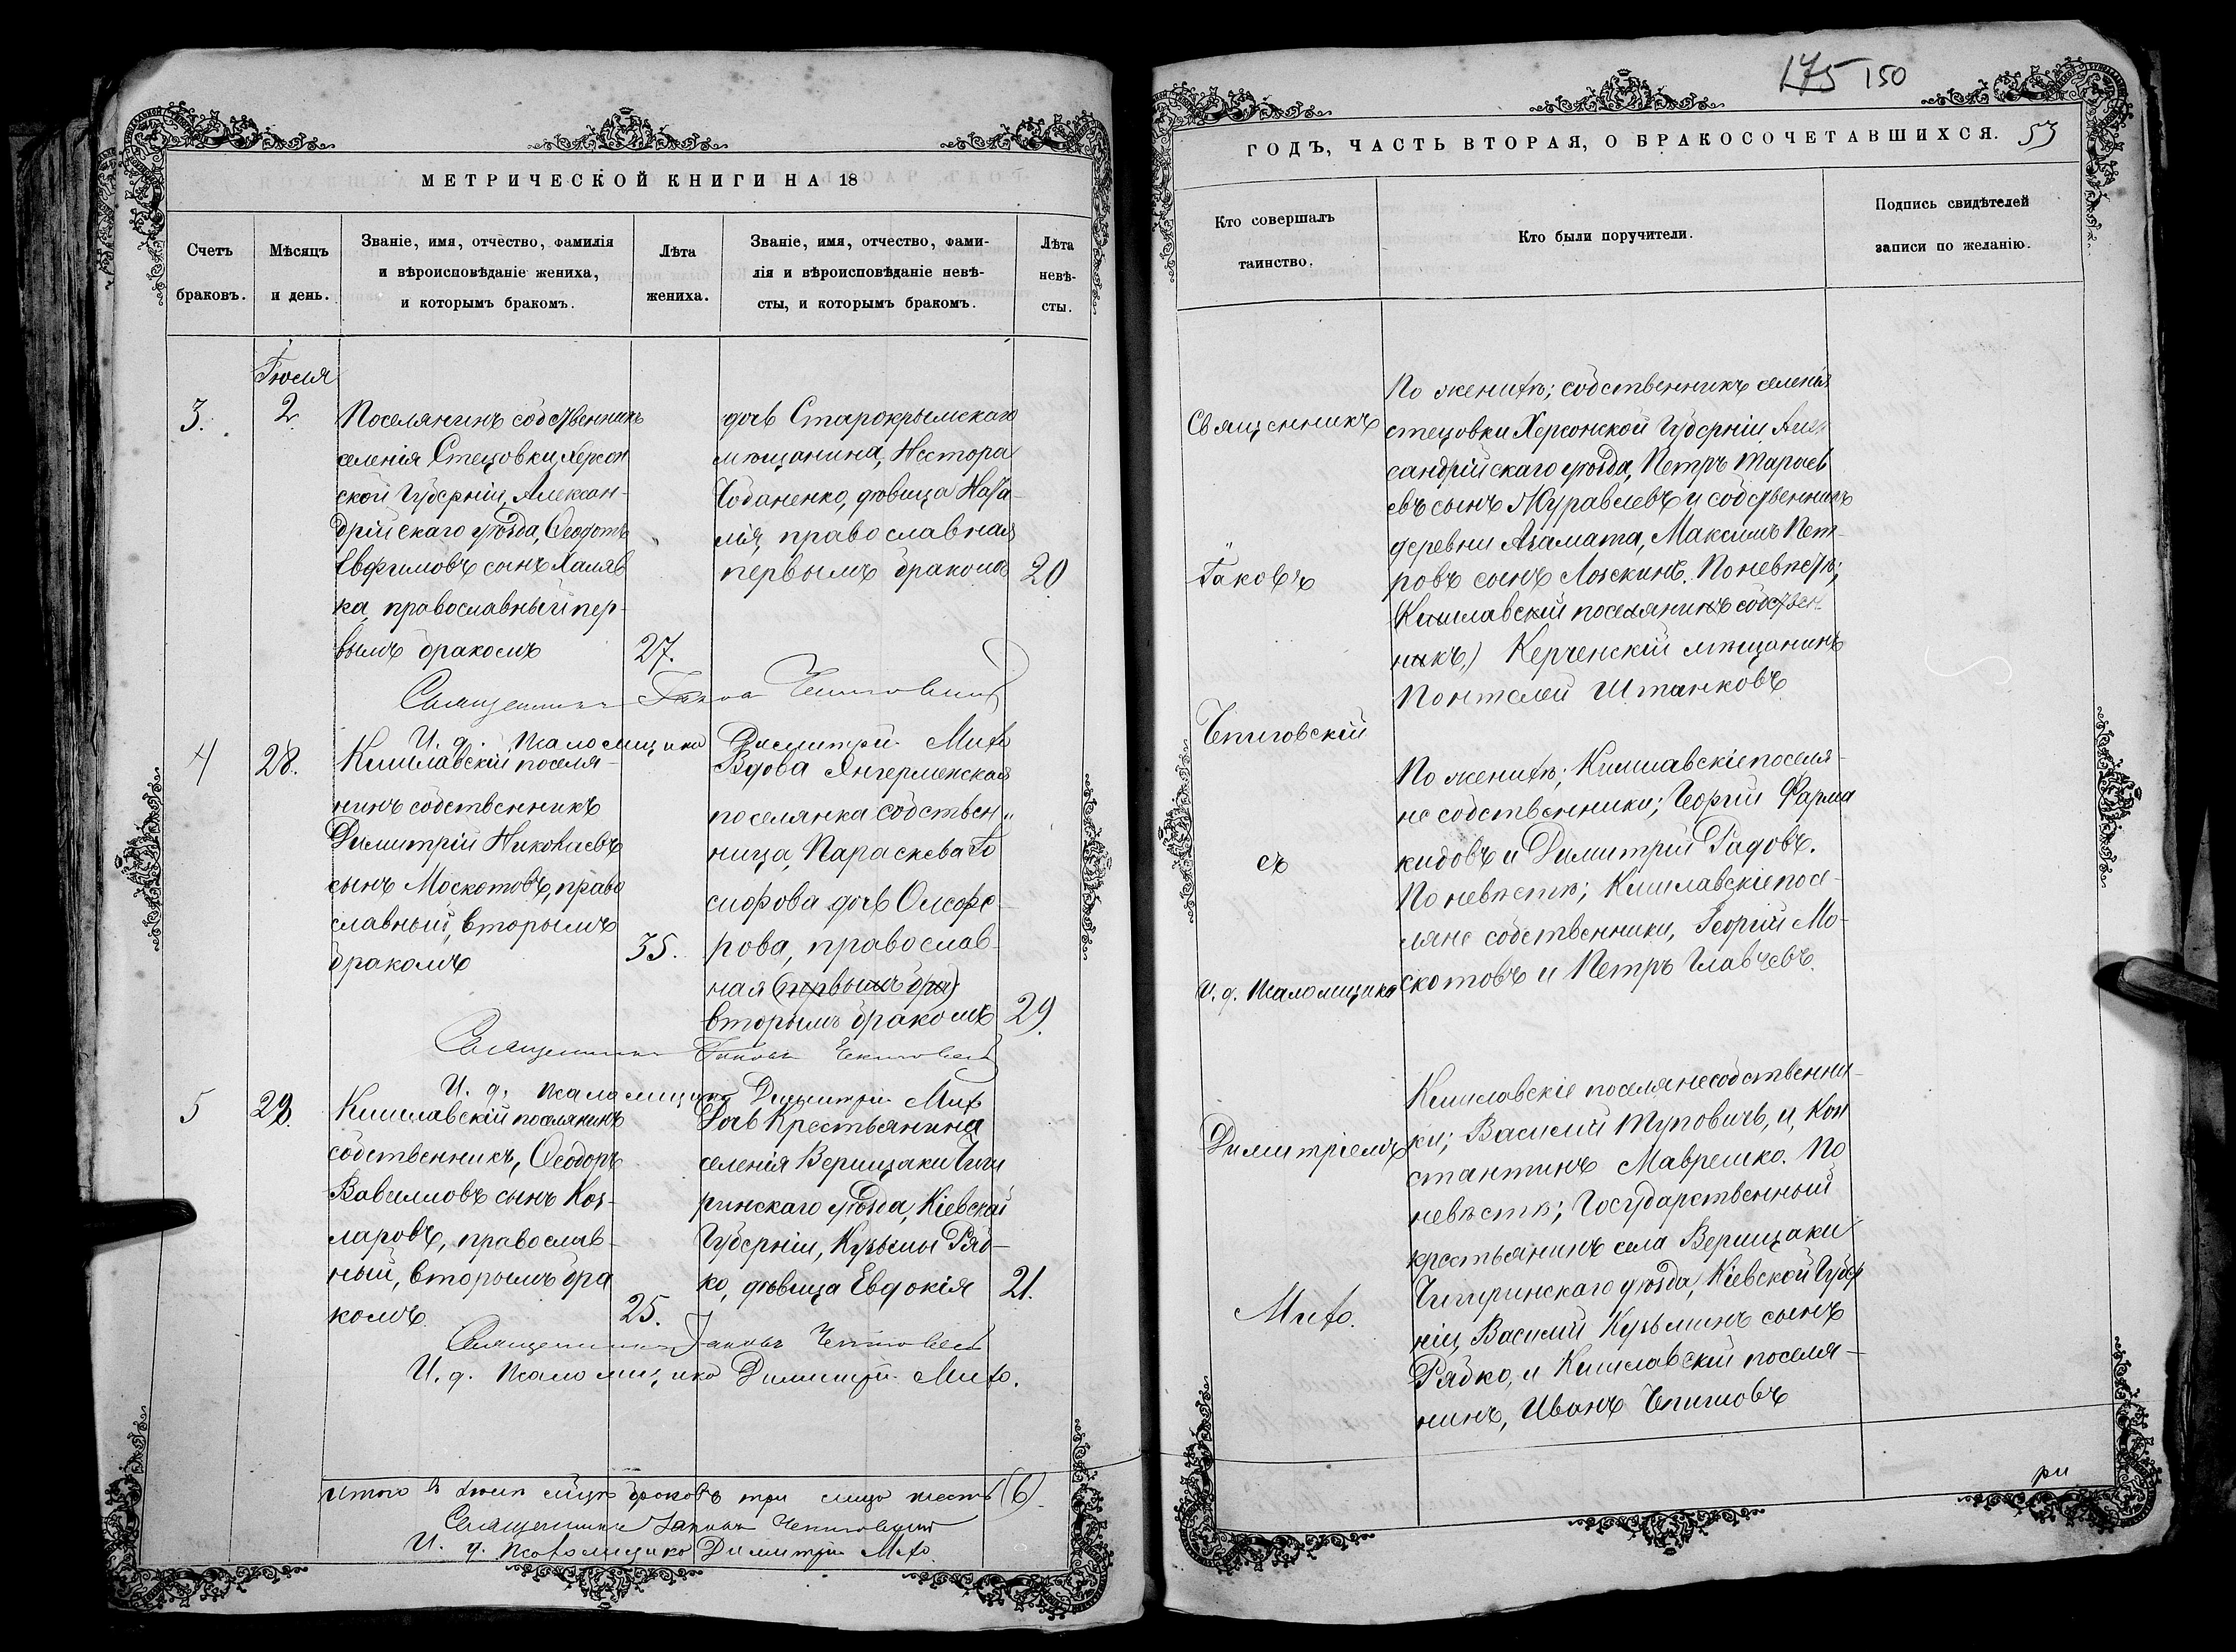 МЕТРИЧЕСКОЙ КНИГИ НА 18
Счетъ
браковъ.
Мѣсяцъ
и день.
Званіе, имя, отчество, фамилія
и вѣроисповѣданіе жениха,
и которымъ бракомъ.
Лѣта
жениха.
Званіе, имя, отчество, фами-
лія и вѣроисповѣданіе невѣ-
сты, и которымъ бракомъ.
Лѣта
невѣ-
сты.
3.
2
Поселянинъ собственникъ
селенія Стецовки, Херсон
ской Губерніи, Алексан-
дрійскаго уѣзда, Ѳеодотъ
Евфимовъ сынъ Халяв
ка, православный пер-
вымъ бракомъ
27.
дочь Старокрымскаго
мѣщанина, Нестора
дѣвица Ната-
лія, православная
первымъ бракомъ
20
Священникъ Іаковъ Чепиговскій
И. д. псаломщика Димитрій Мито
4
28.
Кишлавскій поселя-
нинъ собственникъ
Димитрій Николаевъ
сынъ Москотовъ, право
славный, вторымъ
бракомъ
35.
Вдова
поселянка собствен„
ница, Параскева Іо
сифова дочь
рова, православ-
ная (первымъ бра)
вторымъ бракомъ
29.
Священникъ Іаковъ Чепиговскій
И. д. псаломщика Димитрій Мито
5
29.
Кишлавскій поселянинъ
собственникъ, Ѳеодоръ
Вавиловъ сынъ
ларовъ, православ-
ный, вторымъ бра
комъ
25.
Дочь Крестьянина
селенія Верищаки Чиги
ринскаго уѣзда, Кіевской
Губерніи, Кузьмы Ряб-
ко, дѣвица Евдокія
21.
Священникъ Іаковъ Чепиговскій
И. д. псаломщика Димитрій Мито.
Итого въ мцѣ браковъ три лицъ шесть (6).
Священникъ Іаковъ Чепиговскій
И. д. псаломщика Димитрій Мито.
175 150
ГОДЪ, ЧАСТЬ ВТОРАЯ, О БРАКОСОЧЕТАВШИХСЯ. 53
Кто совершалъ
таинство.
Кто были поручители.
Подпись свидѣтелей
записи по желанію.
Священникъ
Іаковъ
Чепиговскій
съ
И. д. псаломщика
Димитріемъ
Мито.
По женихѣ; собственникъ селенія
Стецовки Херсонской Губерніи Алек
сандрійскаго уѣзда, Петръ Тарасі
евъ сынъ Журавлевъ и собственникъ
деревни Азамата, Максимъ Пет-
ровъ сынъ По невѣстѣ;
Кишлавскій поселянинъ собствен-
никъ,) Керченскій мѣщанинъ
Понтелей Штанковъ
По женихѣ; Кишлавскіе поселя-
не собственники; Георгій Фарма
кидовъ и Димитрій Радовъ.
По невѣстѣ; Кишлавскіе посе-
ляне собственники, Георгій Мо-
скотовъ и Петръ Главчевъ.
Кишлавскіе поселяне собственни-
ки; Василій Туповичъ, и, Кон
стантинъ Маврешко. По
невѣстѣ; Государственный
крестьянинъ села Верищаки
Чигиринскаго уѣзда, Кіевской Губер
ніи, Василій Кузьминъ сынъ
Рябко, и Кишлавскій поселя-
нинъ, Иванъ